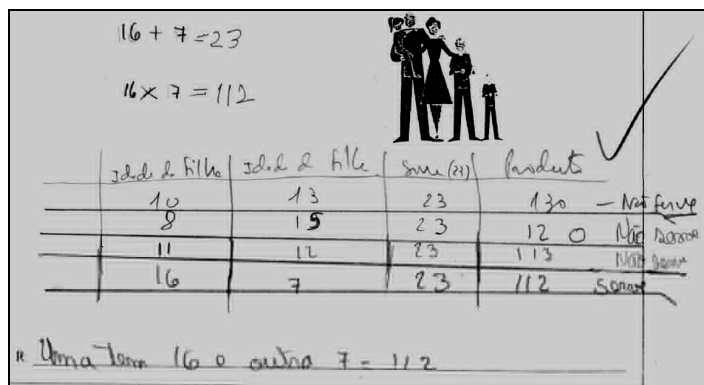 16 + 7 = 23
16 x 7 = 112
Idade do Filho Idade d Filho Soma (23) Produto
10 13 23 130 - Não Serve
8 15 23 120 Não serve
11 12 23 113 Não serve
16 7 23 112 serve
R Uma tem 16 o outro 7 = 112